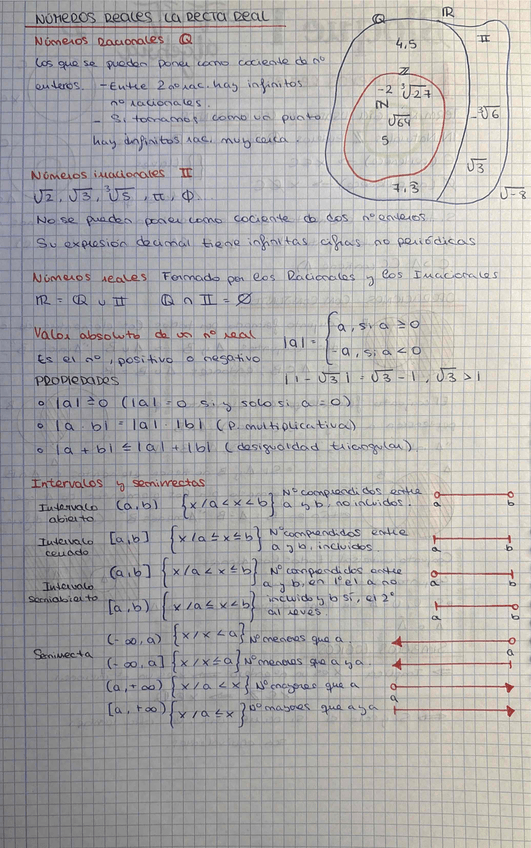 NÚMEROS REALES. LA RECTA REAL
Números Racionales Q
Los que se pueden poner como cociente de nº
enteros. - Entre 2 nº rac. hay infinitos
nº racionales.
- Si tomamos como un punto
hay infinitos rac. muy cerca.
Q
IR
4,5
II
Z
-2 ³√27
IN
√64
5
-³√6
√3
7,3
√-8
Números irracionales II
√2, √3, ³√5, π, Φ
No se pueden poner como cociente de dos nº enteros.
Su expresión decimal tiene infinitas cifras no periódicas
Números reales Formado por los Racionales y los Irracionales
IR = Q ∪ II Q ∩ II = Ø
Valor absoluto de un nº real
Es el nº, positivo o negativo
|a| = { a, si a ≥ 0
-a, si a < 0
PROPIEDADES
|1 - √3| = √3 - 1, √3 > 1
o |a| ≥ 0 (|a| = 0 si y solo si a = 0)
o |a · b| = |a| · |b| (P. multiplicativa)
o |a + b| ≤ |a| + |b| (desigualdad triangular)
Intervalos y semirrectas
Intervalo abierto (a, b) {x / a < x < b} Nº comprendidos entre
a y b, no incluidos. a b
Intervalo cerrado [a, b] {x / a ≤ x ≤ b} Nº comprendidos entre
a y b, incluidos. a b
Intervalo semiabierto (a, b] {x / a < x ≤ b} Nº comprendidos entre
a y b, en 1º el a no a b
[a, b) {x / a ≤ x < b} incluido y b sí, el 2º
al revés. a b
Semirrecta (-∞, a) {x / x < a} Nº menores que a a
(-∞, a] {x / x ≤ a} Nº menores que a y a.
(a, +∞) {x / a < x} Nº mayores que a a
[a, +∞) {x / a ≤ x} Nº mayores que a y a